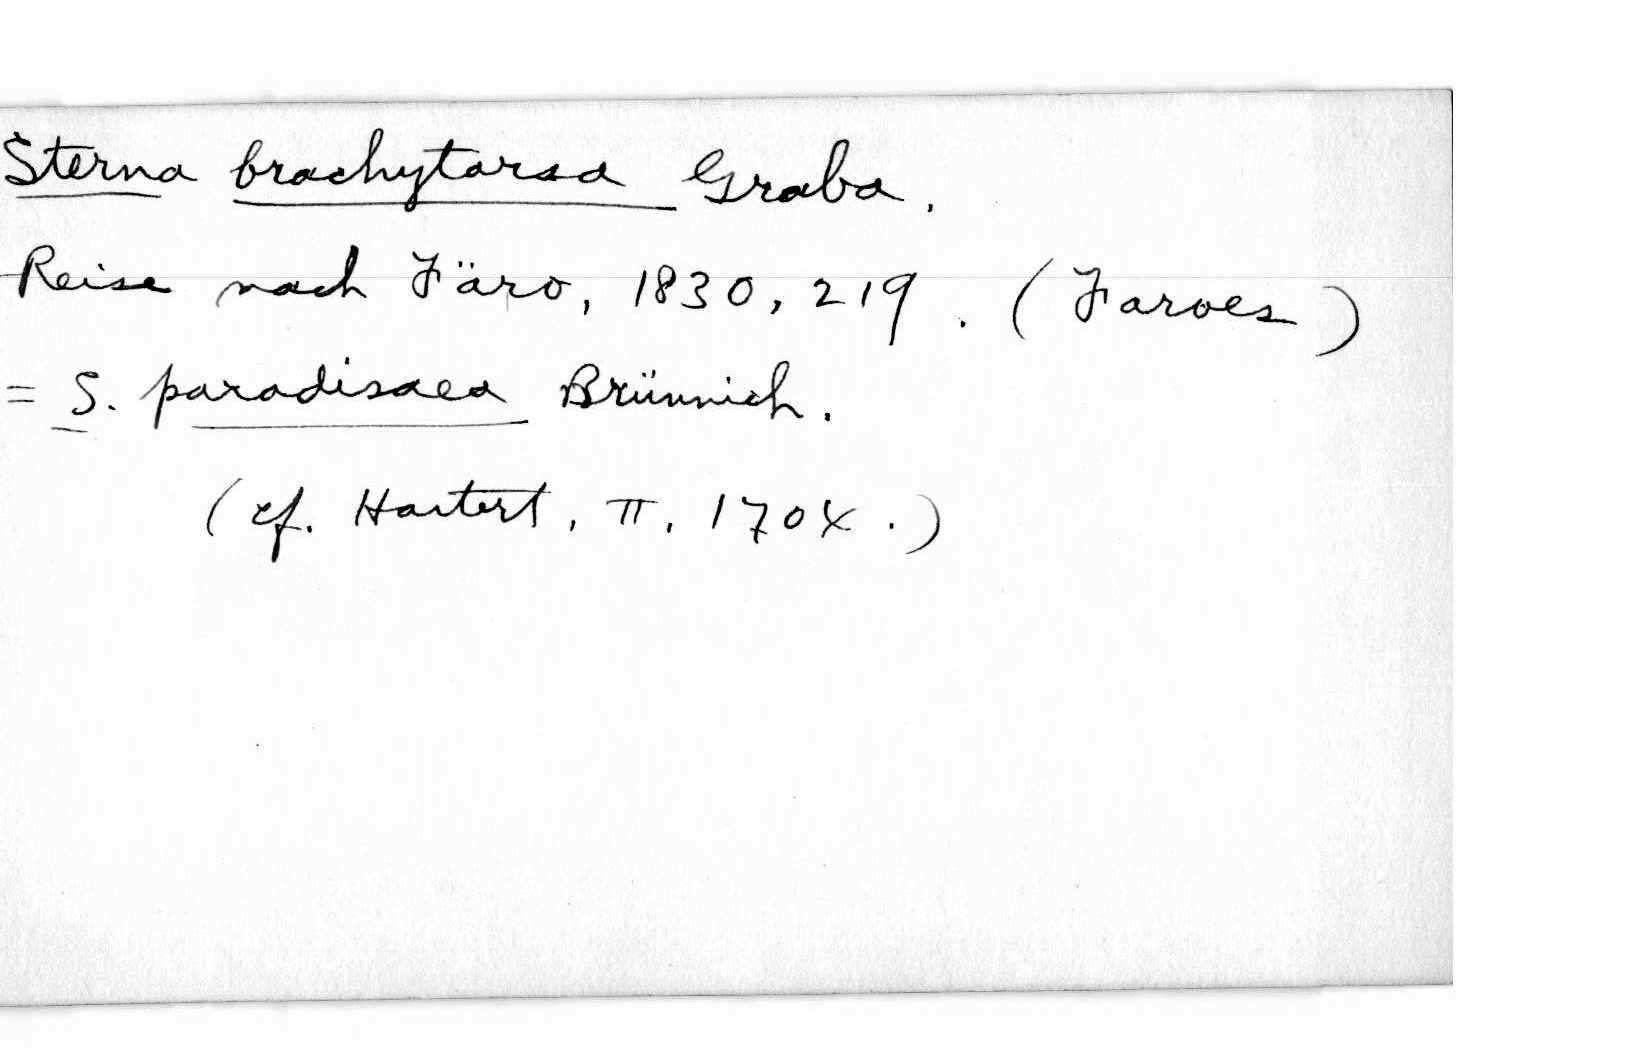 Sterna brachytarsa Graba.
Reise nach Färo, 1830, 219. (Faroes)
= S. paradisaea Brünnich.
(cf. Hartert, II, 1704.)